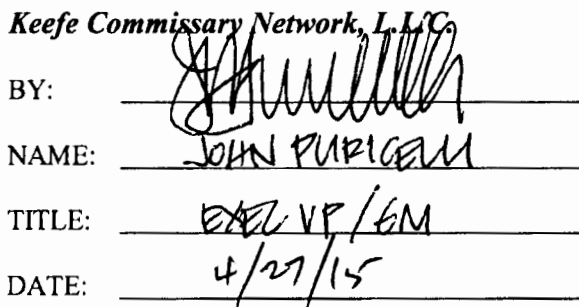 Keefe Commissary Network, L.L.C.
BY:
NAME: JOHN PURICELLI
TITLE: EXEC VP/GM
DATE: 4/27/15